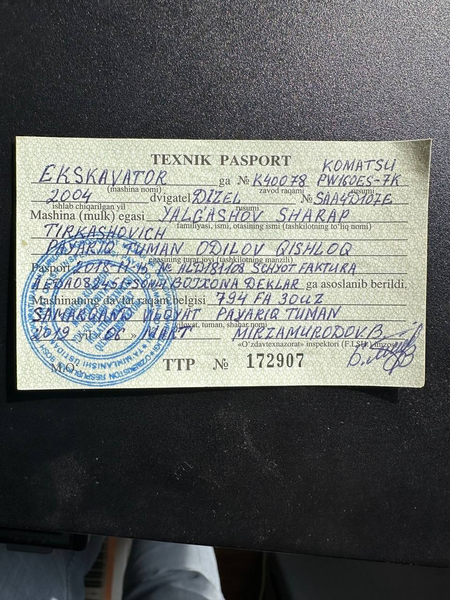 TEXNIK PASPORT
EKSKAVATOR ga № K40078 KOMATSU PW160ES-7K
(mashina nomi) zavod raqami rusumi
2004 dvigatel DIZEL № SAA4D107E
ishlab chiqarilgan yil rusumi
Mashina (mulk) egasi YALGASHOV SHARAP
familiyasi, ismi, otasining ismi (tashkilotning to'liq nomi)
TIRKASHOVICH
PAYARIQ TUMAN ODILOV QISHLOQ
egasining turar joyi (tashkilotning manzili)
Pasport 2018-11-15 № ALD181108 SCHYOT FAKTURA
BOJXONA DEKLAR ga asoslanib berildi.
Mashinaning davlat raqam belgisi 794 FA 30UZ
SAMARQAND VILOYAT PAYARIQ TUMAN
viloyat, tuman, shahar nomi
2019 yil 06 MART MIRZAMURODOV.B
«O'zdavtexnazorat» inspektori (F.I.SH.) imzosi
M.O'. TTP № 172907